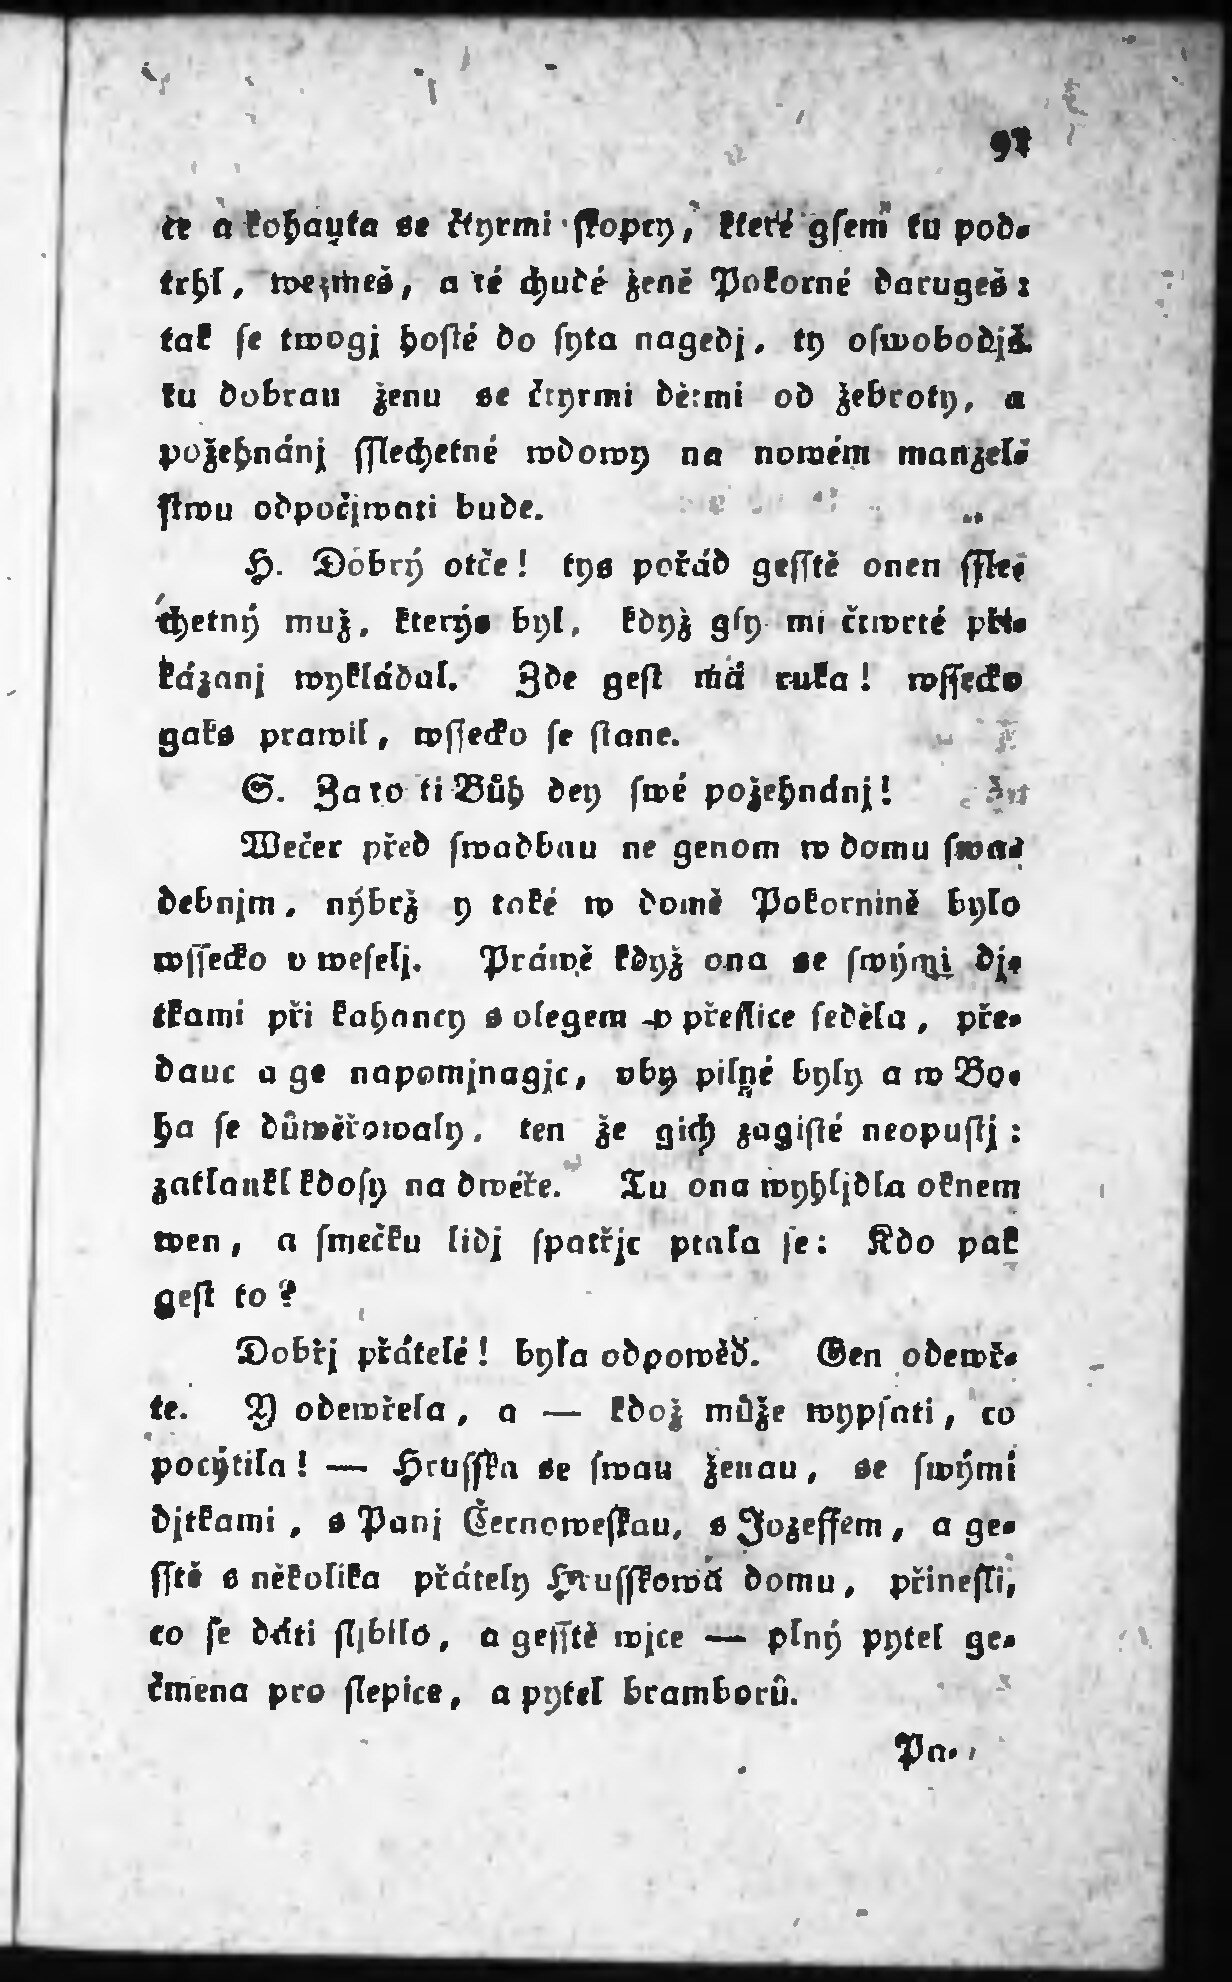 97
te a kohauta se čtyrmi skopcy, které gsem tu pod-
trhl, wezmeš, a té chudé ženě Pokorné darugeš:
tak se twogj hosté do syta nagedj, ty oswobodjš
tu dobrau ženu se čtyrmi dětmi od žebroty, a
požehnánj sslechetné wdowy na nowém manžel-
stwu odpočjwati bude.
H. Dobrý otče! tys pořád gesstě onen ssle-
chetný muž, kterýs byl, když gsy mi čtwrté při-
kázanj wykládal. Zde gest má ruka! wssecko
gaks prawil, wssecko se stane.
S. Za to ti Bůh dey swé požehnánj!
Wečer před swadbau ne genom w domu swa-
debnjm, nýbrž y také w domě Pokornině bylo
wssecko v weselj. Práwě když ona se swými dj-
tkami při kahancy s olegem v přeslice seděla, pře-
dauc a ge napomjnagjc, vby pilné byly a w Bo-
ha se důwěřowaly, ten že gich zagisté neopustj:
zatlaukl kdosy na dwéře. Tu ona wyhljdla oknem
wen, a smečku lidj spatřjc ptala se: Kdo pak
gest to?
Dobřj přátelé! byla odpowěď. Gen odewř-
te. Y odewřela, a — kdož může wypsati, co
pocýtila! — Hrusska se swau ženau, se swými
djtkami, s Panj Černoweskau, s Jozeffem, a ge-
sstě s několika přátely Hrusskowa domu, přinesli,
co se dáti sljbilo, a gesstě wjce — plný pytel ge-
čmena pro slepice, a pytel bramborů.
Pa-